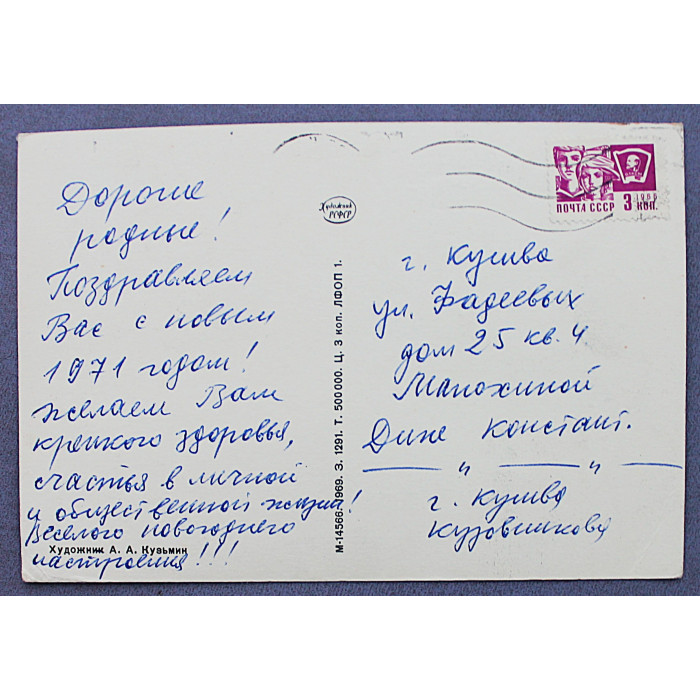 Дорогие
родные!
Поздравляем
Вас с новым
1971 годом!
желаем Вам
крепкого здоровья,
счастья в личной
и общественной жизни!
Веселого новогоднего
настроения!!!
Художник А. А. Кузьмин
Художник
РСФСР
М-14566. 1969. З. 1291. Т. 500000. Ц. 3 коп. ЛФОП 1.
ПОЧТА СССР 3 КОП.
1966
г. Кушва
ул. Фадеевых
дом 25 кв. 4
Манохиной
Дине Констант.
— " — " —
г. Кушва
Кузовникова